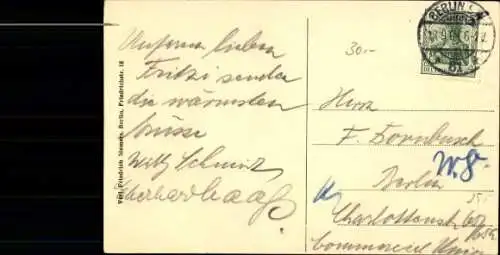 Unserm lieben
Fritzi senden
die wärmsten
Grüsse
Willy Schmitz
Eberhard Haag
Verl. Friedrich Siemens, Berlin, Friedrichstr. 18
30.-
BERLIN
Herrn
F. Dornbusch
W. 8.
Berlin
25.-
Charlottenstr
Commercial Union